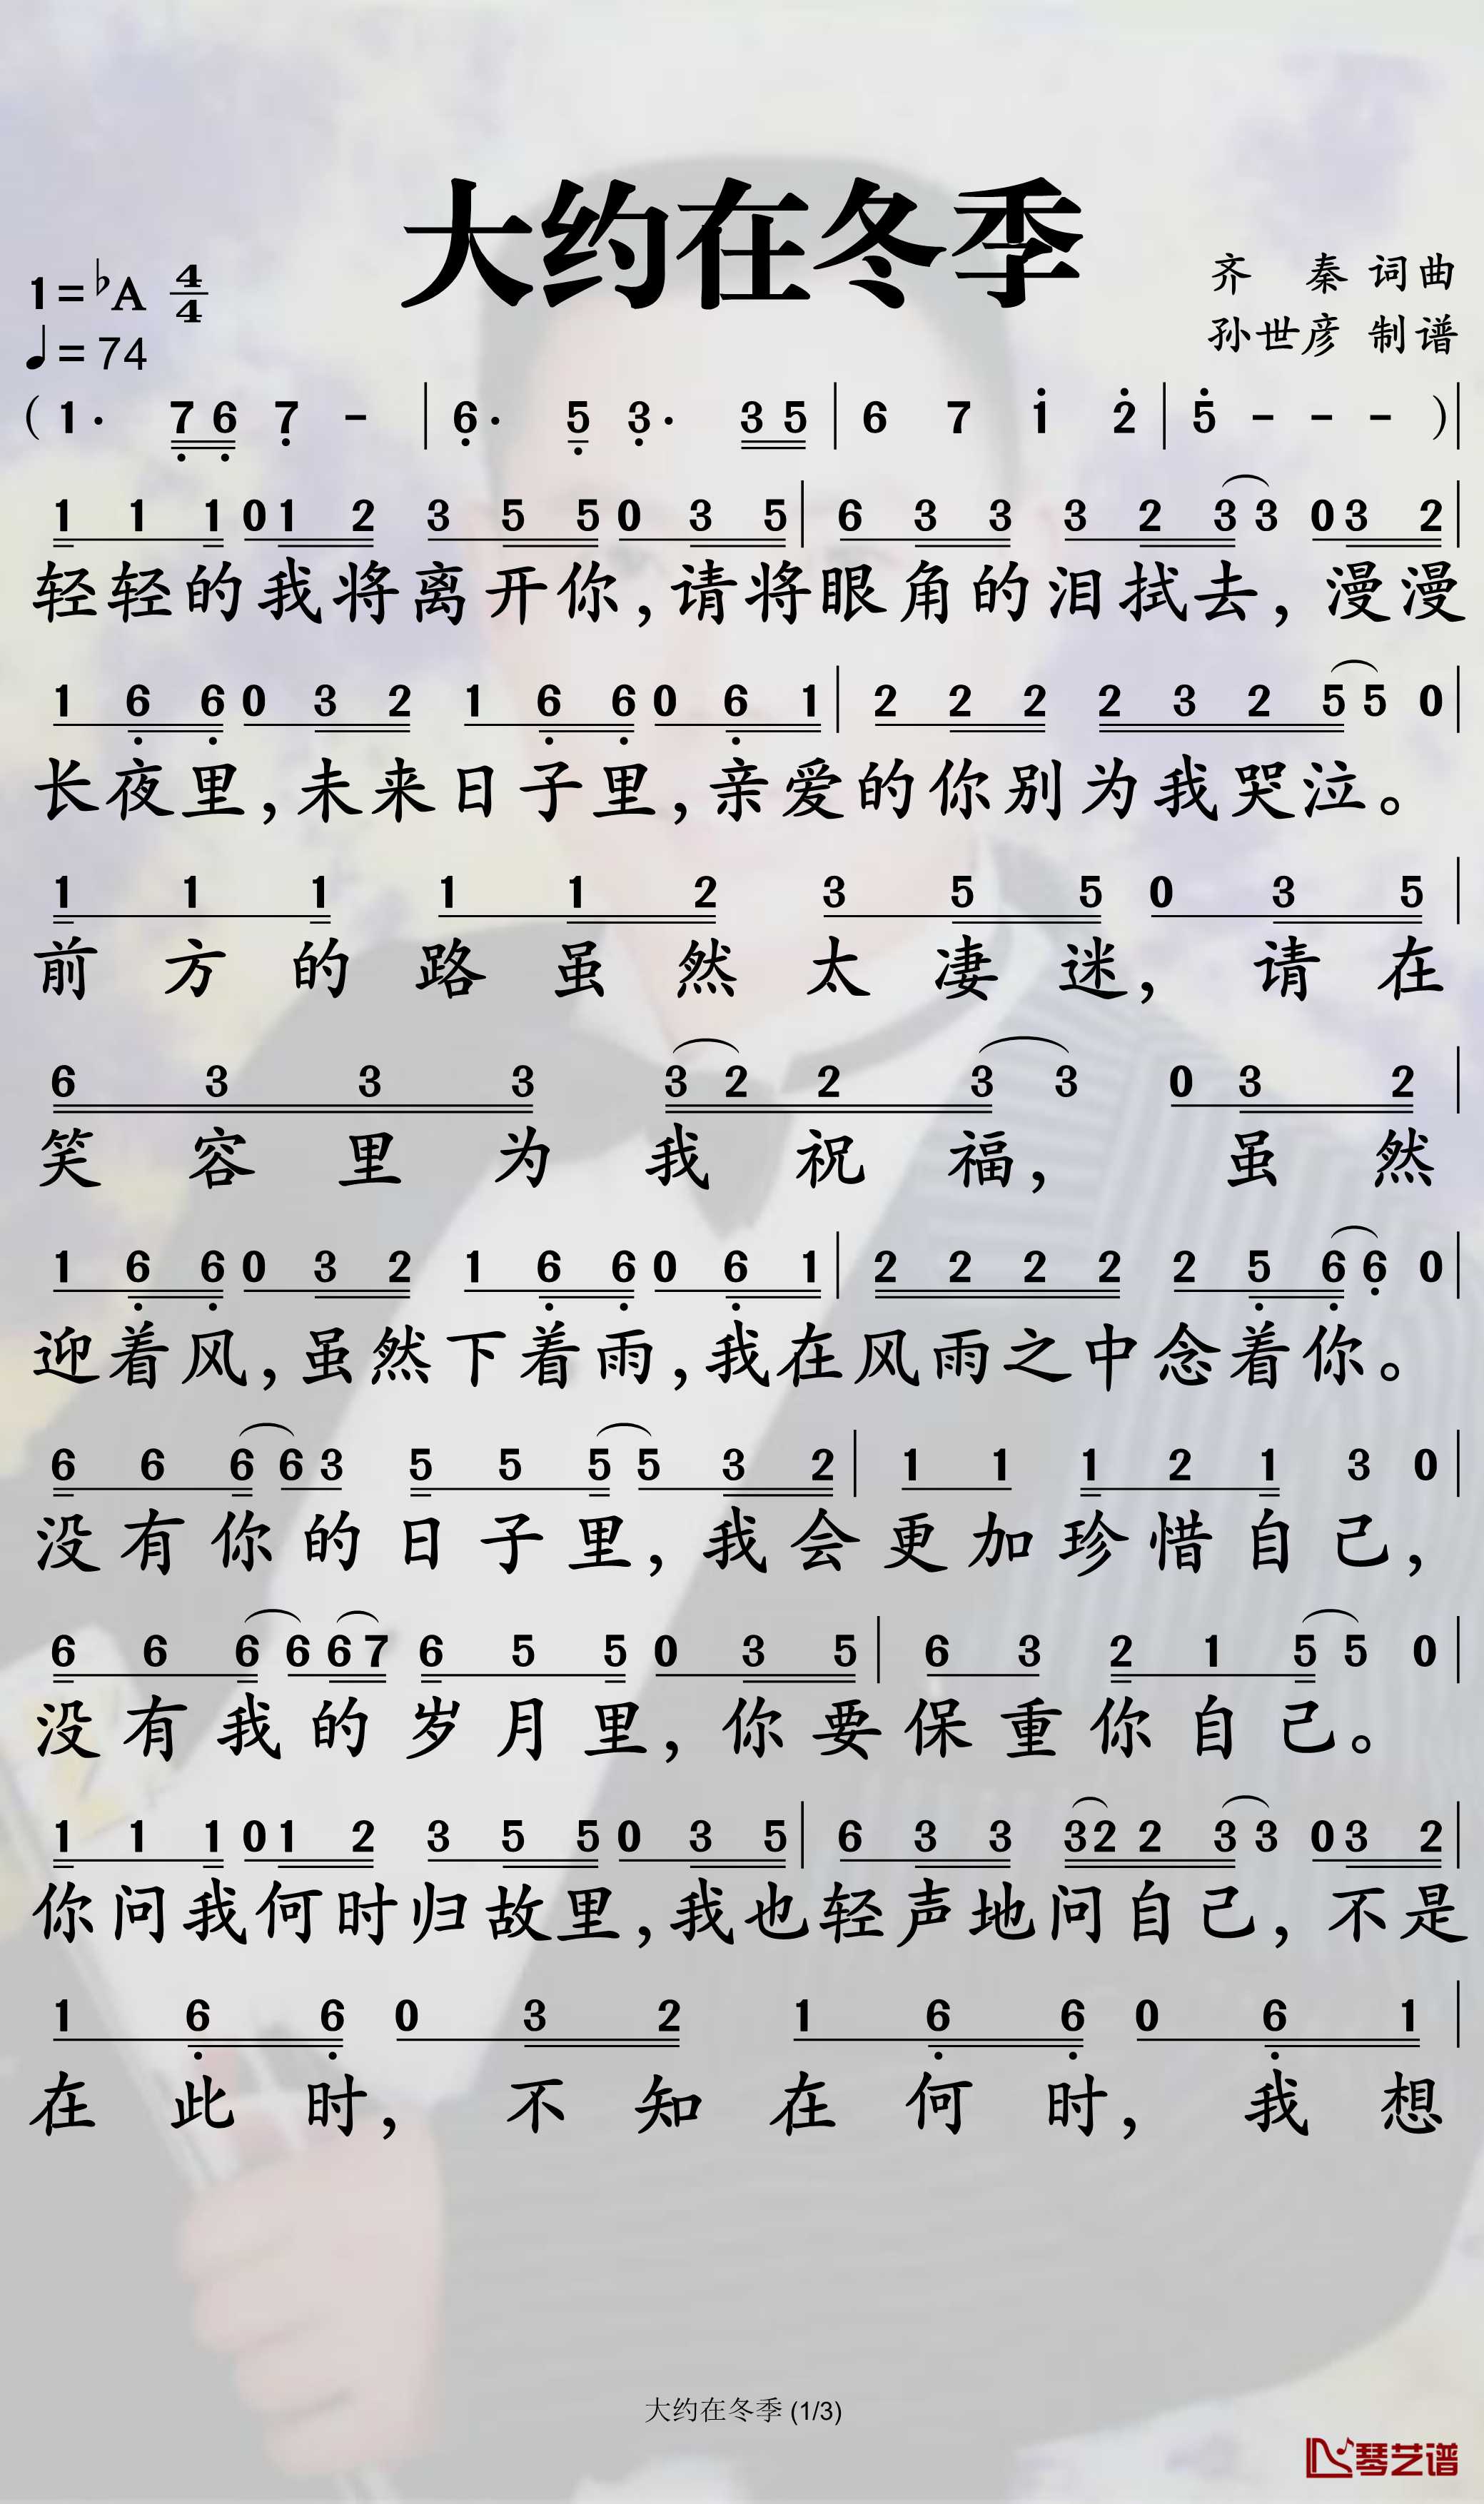 大约在冬季
齐 秦 词曲
1=♭A 4/4
孙世彦 制谱
♩=74
( 1· 7̣ 6̣ 7̣ - | 6̣· 5̣ 3̣· 3 5 | 6 7 1̇ 2̇ | 5̇ - - - ) |
1 1 1 0 1 2 3 5 5 0 3 5 | 6 3 3 3 2 3 3 0 3 2 |
轻轻的我将离开你,请将眼角的泪拭去,漫漫
1 6̣ 6̣ 0 3 2 1 6̣ 6̣ 0 6̣ 1 | 2 2 2 2 3 2 5 5 0 |
长夜里,未来日子里,亲爱的你别为我哭泣。
1 1 1 1 1 2 3 5 5 0 3 5 |
前方的路虽然太凄迷,请在
6 3 3 3 3 2 2 3 3 0 3 2 |
笑容里为我祝福,虽然
1 6̣ 6̣ 0 3 2 1 6̣ 6̣ 0 6̣ 1 | 2 2 2 2 2 5̣ 6̣ 6̣ 0 |
迎着风,虽然下着雨,我在风雨之中念着你。
6 6 6 6 3 5 5 5 5 3 2 | 1 1 1 2 1 3 0 |
没有你的日子里,我会更加珍惜自己,
6 6 6 6 6 7 6 5 5 0 3 5 | 6 3 2 1 5 5 0 |
没有我的岁月里,你要保重你自己。
1 1 1 0 1 2 3 5 5 0 3 5 | 6 3 3 3 2 2 3 3 0 3 2 |
你问我何时归故里,我也轻声地问自己,不是
1 6̣ 6̣ 0 3 2 1 6̣ 6̣ 0 6̣ 1 |
在此时,不知在何时,我想
大约在冬季 (1/3)
琴艺谱